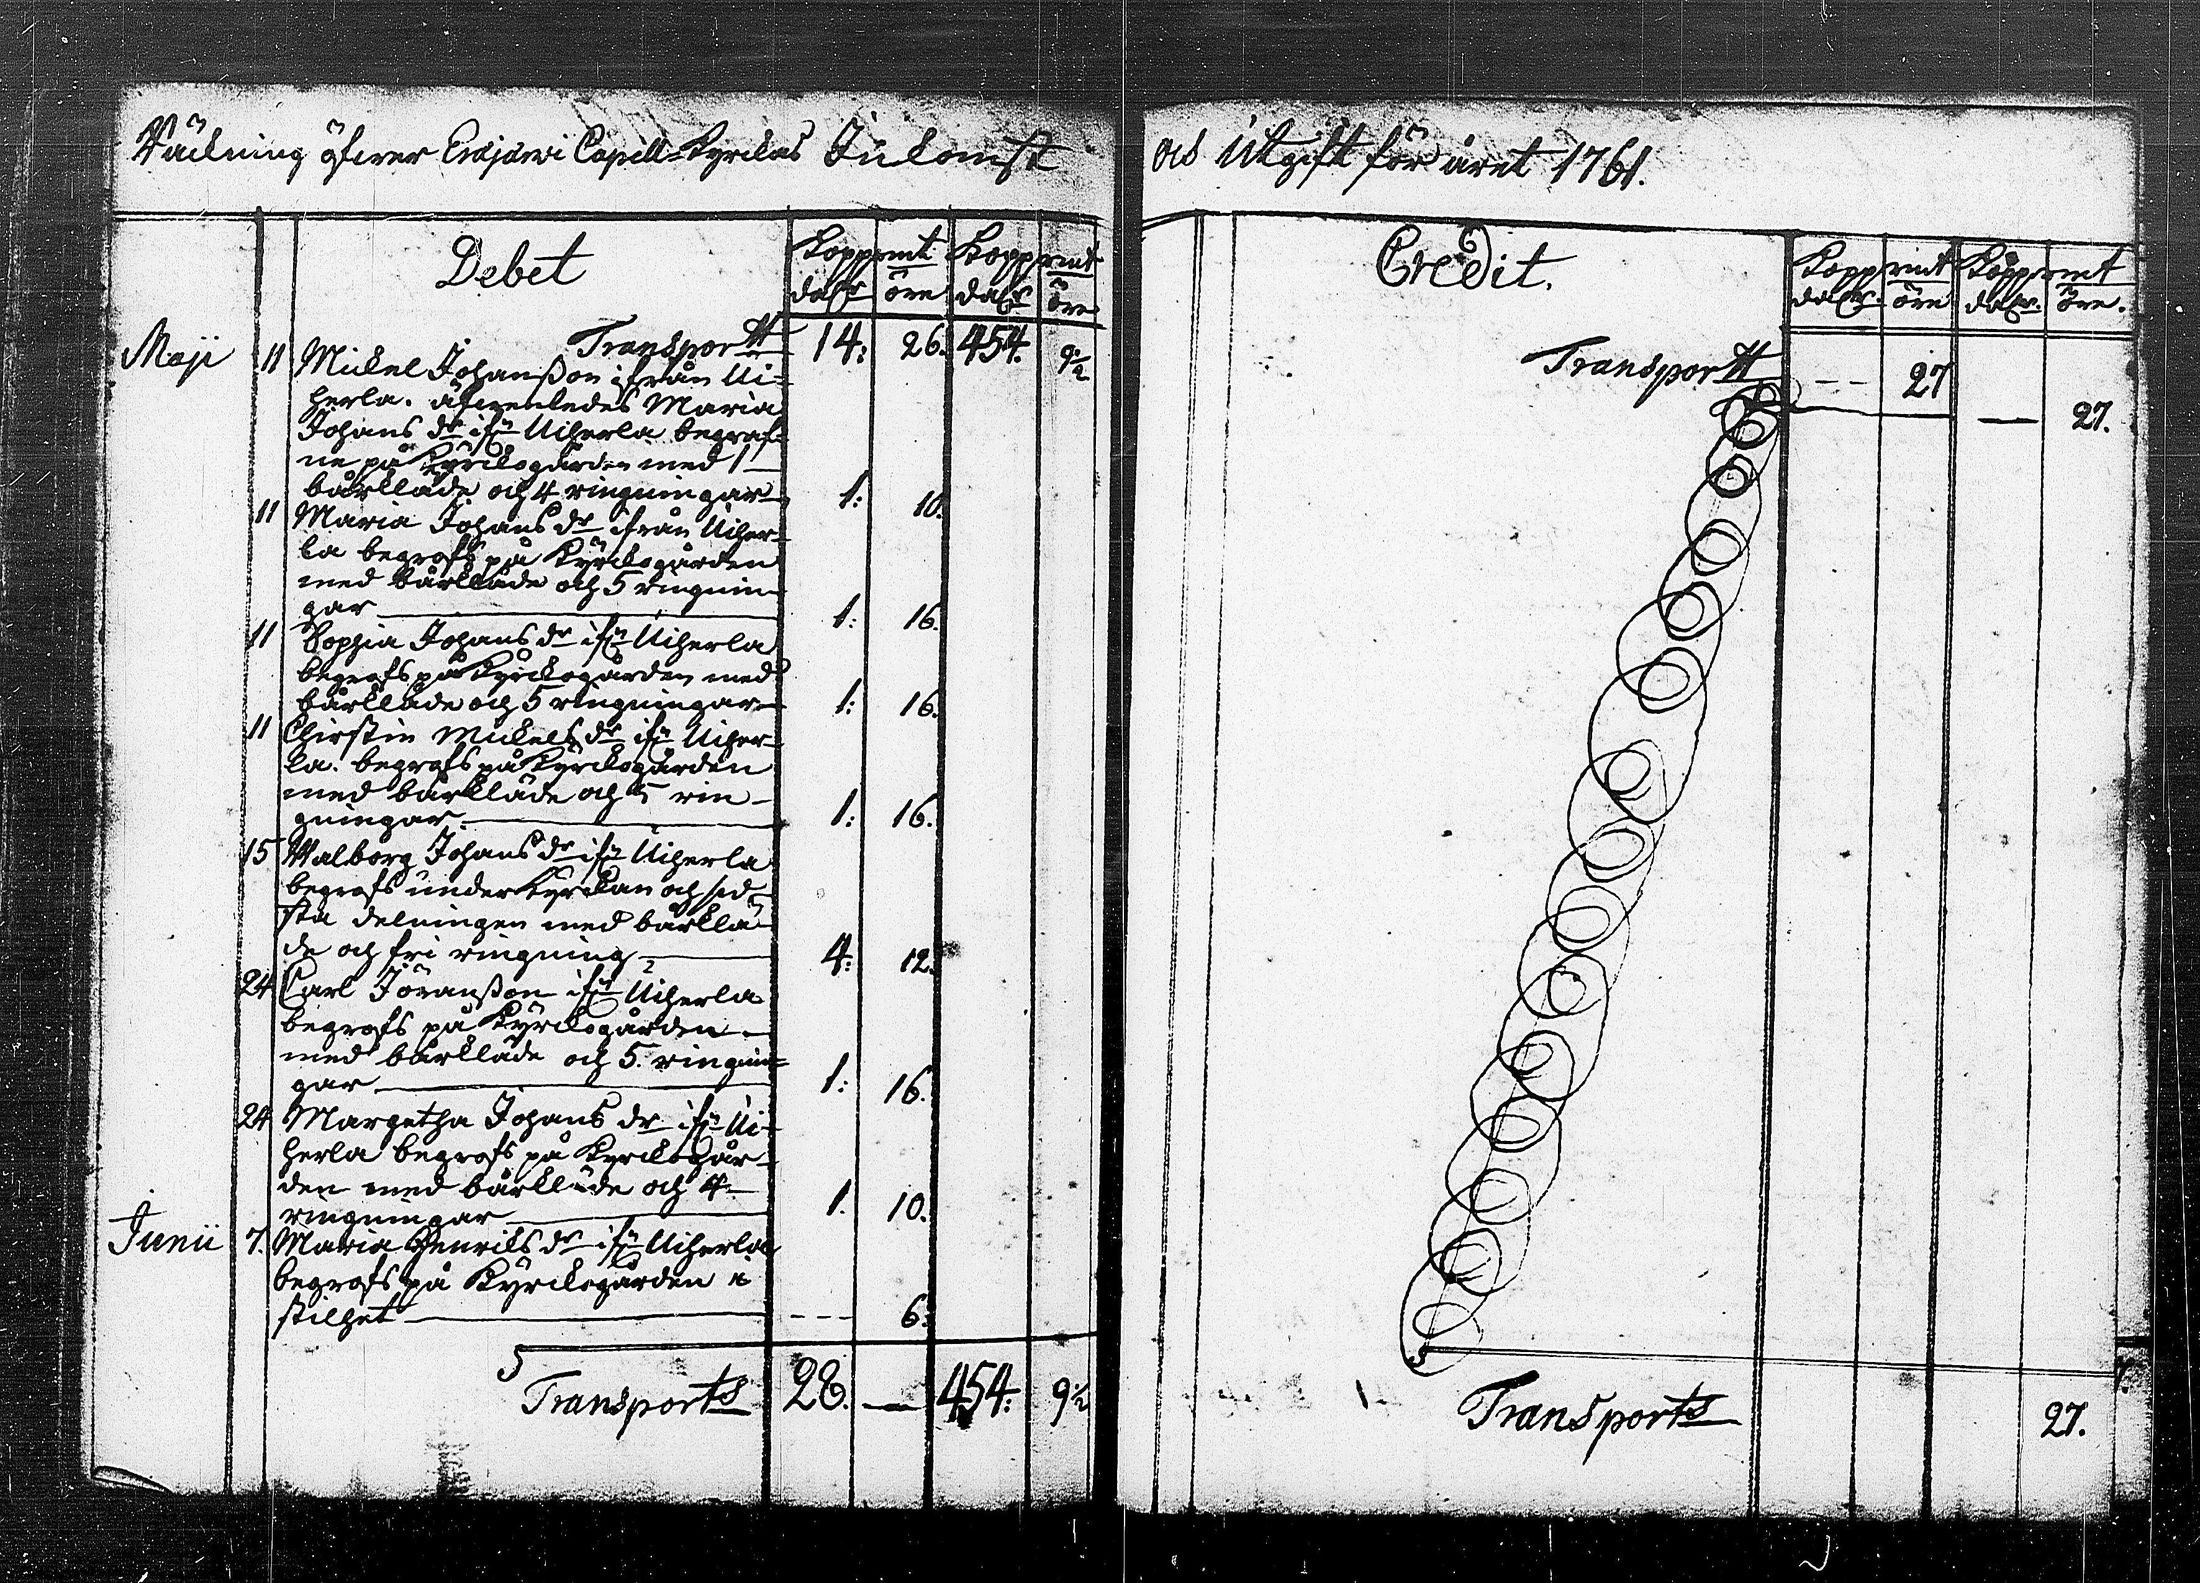 Räckning öfwer Eräjärwi Capell-Kyrckas Inkomst
och Utgift för året 1761.
Debet
Kopp rmt Kopp rmt
dalr öre dalr öre
Transportt 14: 26. 454. 9 1/2
Maji 11 Mickel Johanßon ifrån Ui=
herla. äfwenledes Maria
Johans dr ifrn Uiherla begraf=
ne på Kyrckogården med 1
bårkläde och 4 ringningar 1: 10.
11 Maria Johans dr ifrån Uiher=
la begrofs på Kyrckogården
med bårkläde och 5 ringnin=
gar 1: 16.
11 Sophia Johans dr ifrn Uiherla
begrofs på Kyrckogården med
bårkläde och 5 ringningar 1: 16.
11 Christin Mickels dr ifrn Uiher=
la. begrofs på Kyrckogården
med bårkläde och 5 rin=
gningar. 1: 16.
15 Walborg Johans dr ifrn Uiherla
begrofs under Kyrckan och sid=
sta delningen med bårklä=
de och fri ringning 4: 12.
24 Carl Jöranßon ifrn Uiherla
begrofs på Kyrckogården
med bårkläde och 5. ringnin=
gar 1: 16.
24 Margetha Johans dr ifrn Ui=
herla begrofs på Kyrckogår=
den med bårkläde och 4
ringningar 1. 10.
Junii 7. Maria Henriks dr ifrn Uiherla
begrofs på Kyrckogården i
stilhet 6.
Transports 28. — 454: 9 1/2
Credit.
Kopp rmt Kopp rmt
dalr. öre dalr. öre.
Transportt -- 27
— 27.
Transports 27.